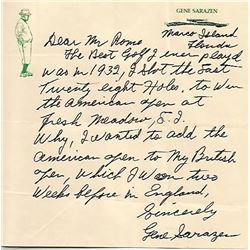 GENE SARAZEN
Marco Island
Florida
Dear Mr Romo
The Best Golf I ever played
was in 1932, I shot the last
Twenty eight Holes, to win
the american open at
Fresh Meadow, L.I.
Why, I wanted to add the
American open to My British
open, which I won two
weeks before in England,
Sincerely
Gene Sarazen